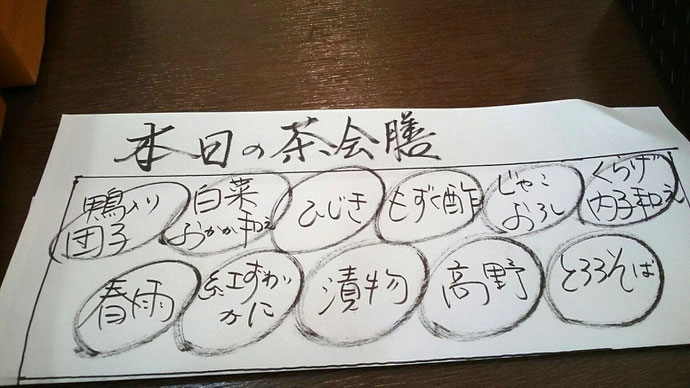 本日の茶会膳
鴨入り
団子
白菜
おかか和え
ひじき
もずく酢
じゃこ
おろし
くらげ
内子和え
春雨
紅ずわい
かに
漬物
高野
とろろそば